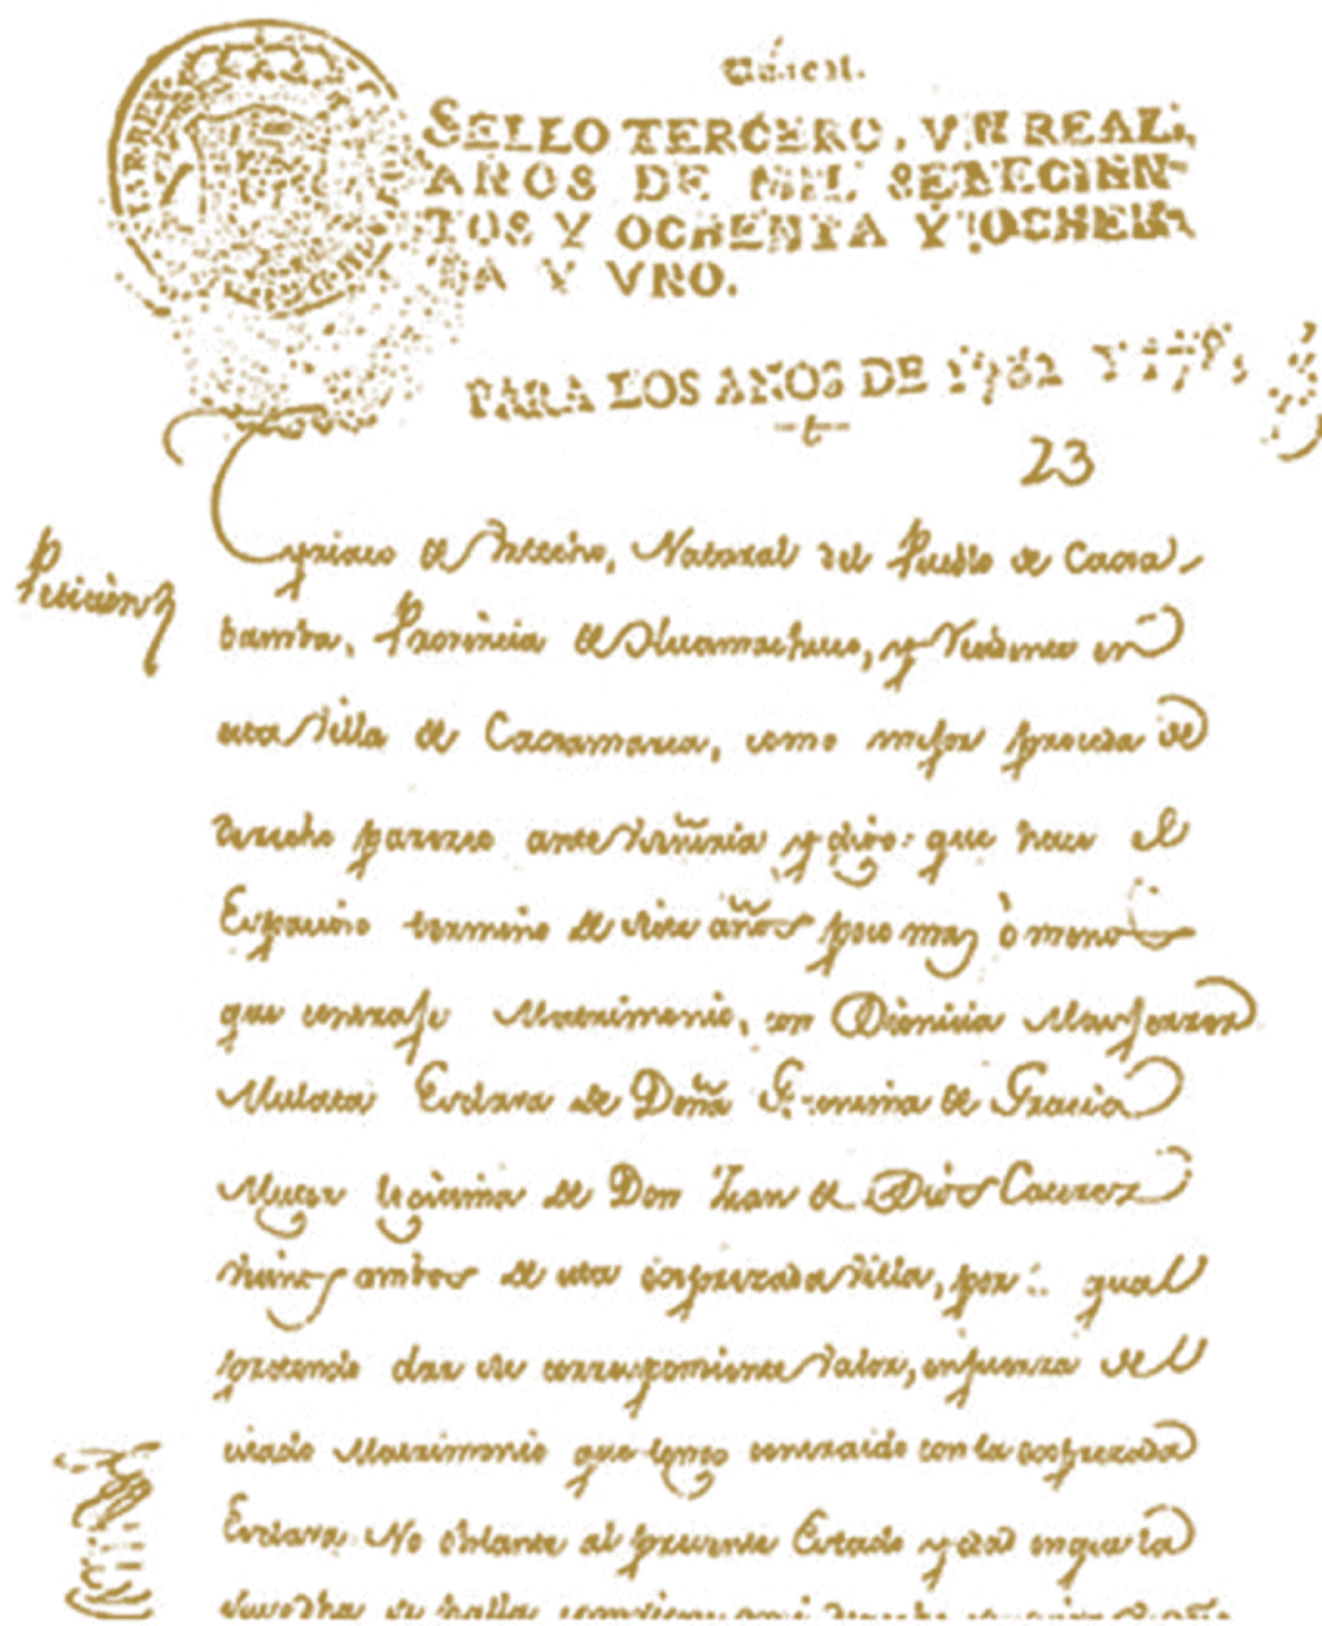 SELLO TERCERO, VN REAL,
AÑOS DE MIL SETECIEN-
TOS Y OCHENTA Y OCHEN-
TA Y VNO.
PARA LOS AÑOS DE 1782 Y
23
Petición
de Natural del Pueblo de Caxa-
bamba, Provincia de Huamachuco, y Vesino en
esta Villa de Caxamarca, como mejor proceda de
derecho paresco ante y digo: que hace el
Espacio termino de siete años poco mas ò menos
que contraje Matrimonio, con Dionicia
Mulata Esclava de Doña de Gracia
Muger legitima de Don Juan de Dios Caceres
vecinos ambos de esta expresada Villa, por qual
pretendo dar su correspondiente valor, en fuerza del
citado Matrimonio que tengo contraido con la expresada
Esclava. No obstante al presente Estado y en que la
susodha se halla